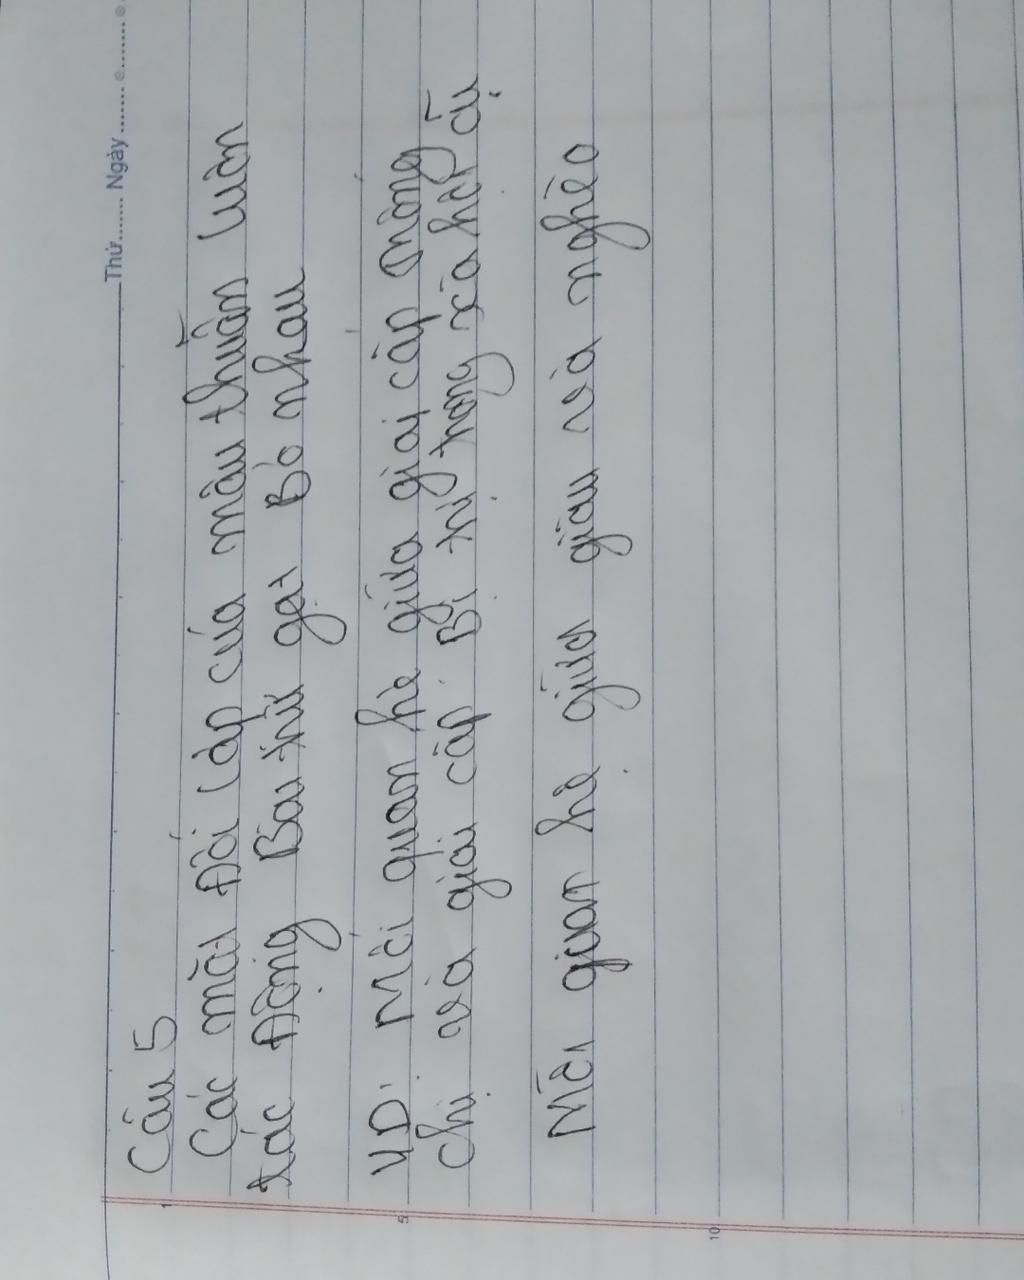 Thứ....... Ngày ....... ⊙....... ⊙
Câu 5
Các mặt đối lập của mâu thuẫn luôn
tác động Bài trừ gạt Bỏ nhau
VD: Mối quan hệ giữa giai cấp thống
chị và giai cấp Bị trị trong xã hội cũ
Mối quan hệ giữa giàu và nghèo
1
5
10